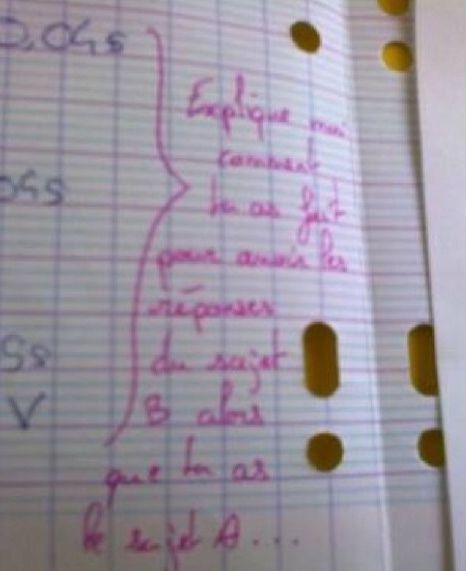 0,04s
Explique moi
comment
04s
tu as fait
pour avoir les
réponses
du sujet
5s
B alors
V
que tu as
le sujet A...